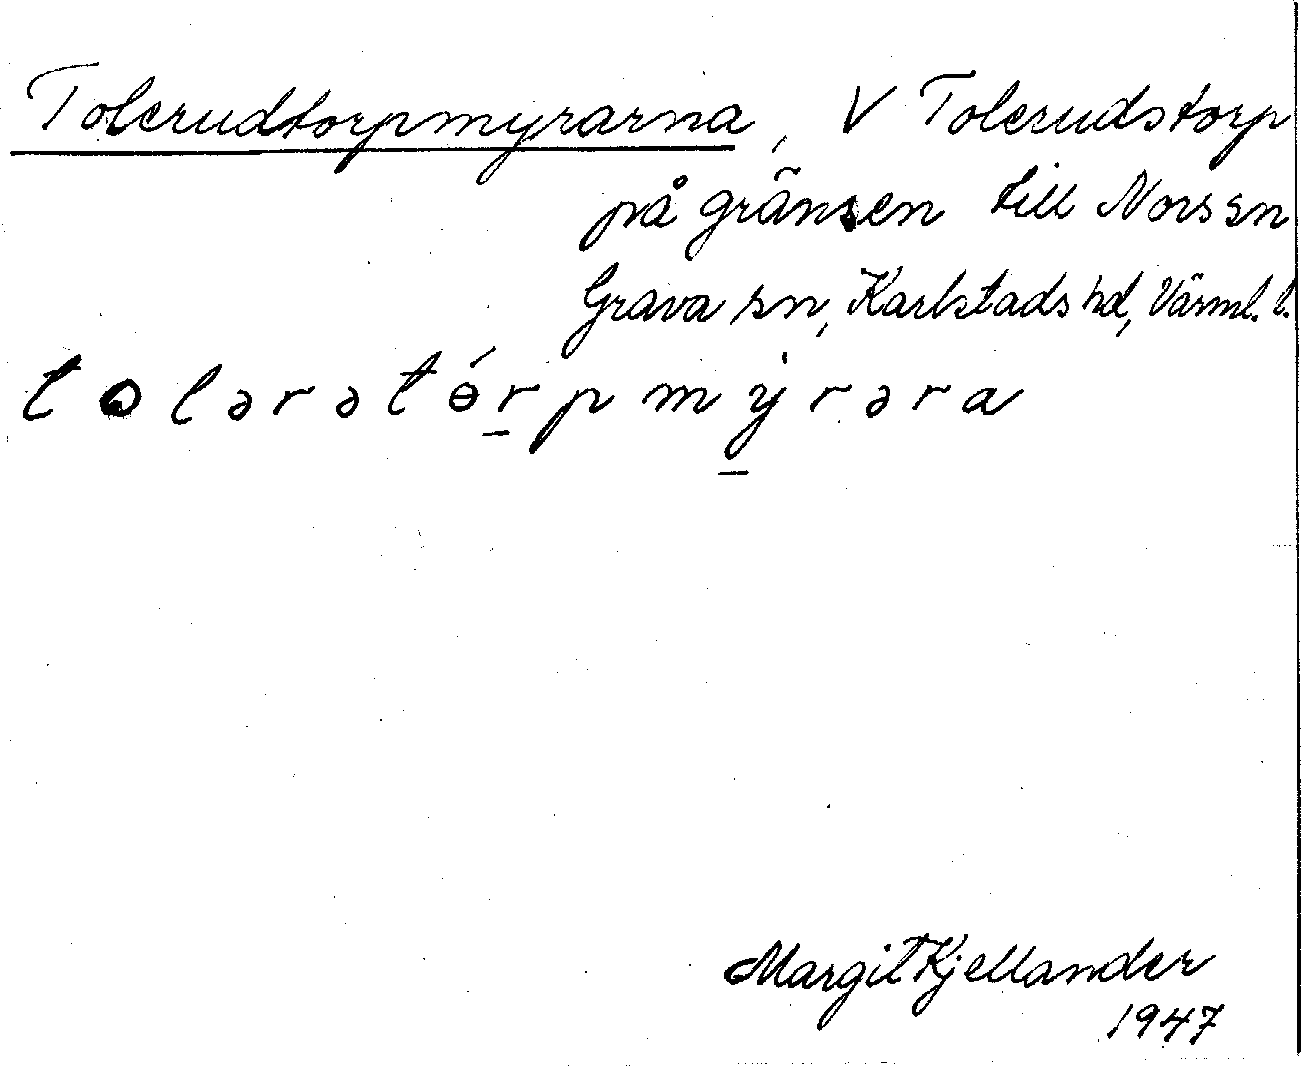 Tolerudtorpmyrarna, V Tolerudstorp
på gränsen till Nors sn
Grava sn, Karlstads hd, Värml. l.
tolərətɵ́r̲pmẏ̲rəra
Margit Kjellander
1947